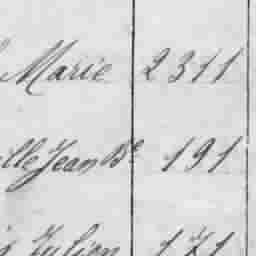 Marie 2311
lle Jean Bte 191
Julien 171